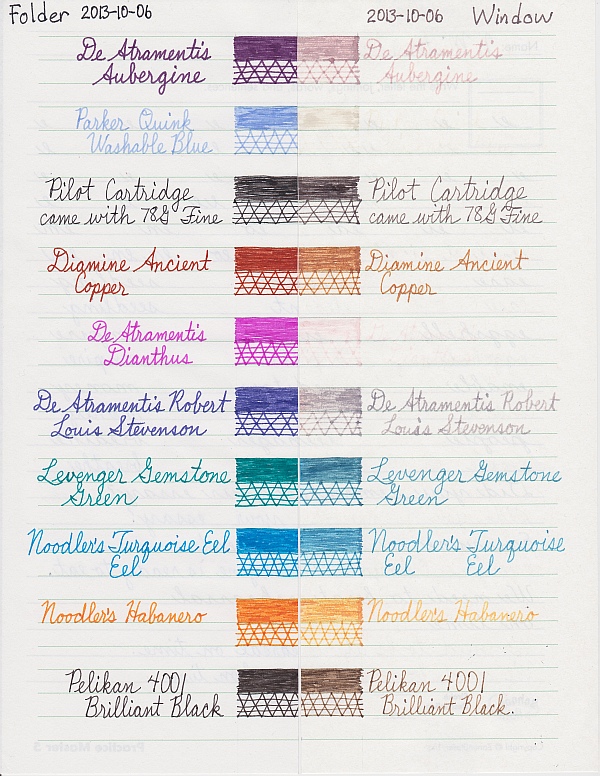 Folder 2013-10-06
2013-10-06 Window
De Atramentis
Aubergine
De Atramentis
Aubergine
Parker Quink
Washable Blue
Pilot Cartridge
came with 78G Fine
Pilot Cartridge
came with 78G Fine
Diamine Ancient
Copper
Diamine Ancient
Copper
De Atramentis
Dianthus
De Atramentis Robert
Louis Stevenson
De Atramentis Robert
Louis Stevenson
Levenger Gemstone
Green
Levenger Gemstone
Green
Noodler's Turquoise Eel
Eel
Noodler's Turquoise
Eel Eel
Noodler's Habanero
Noodler's Habanero
Pelikan 4001
Brilliant Black
Pelikan 4001
Brilliant Black.
Practice Master 5